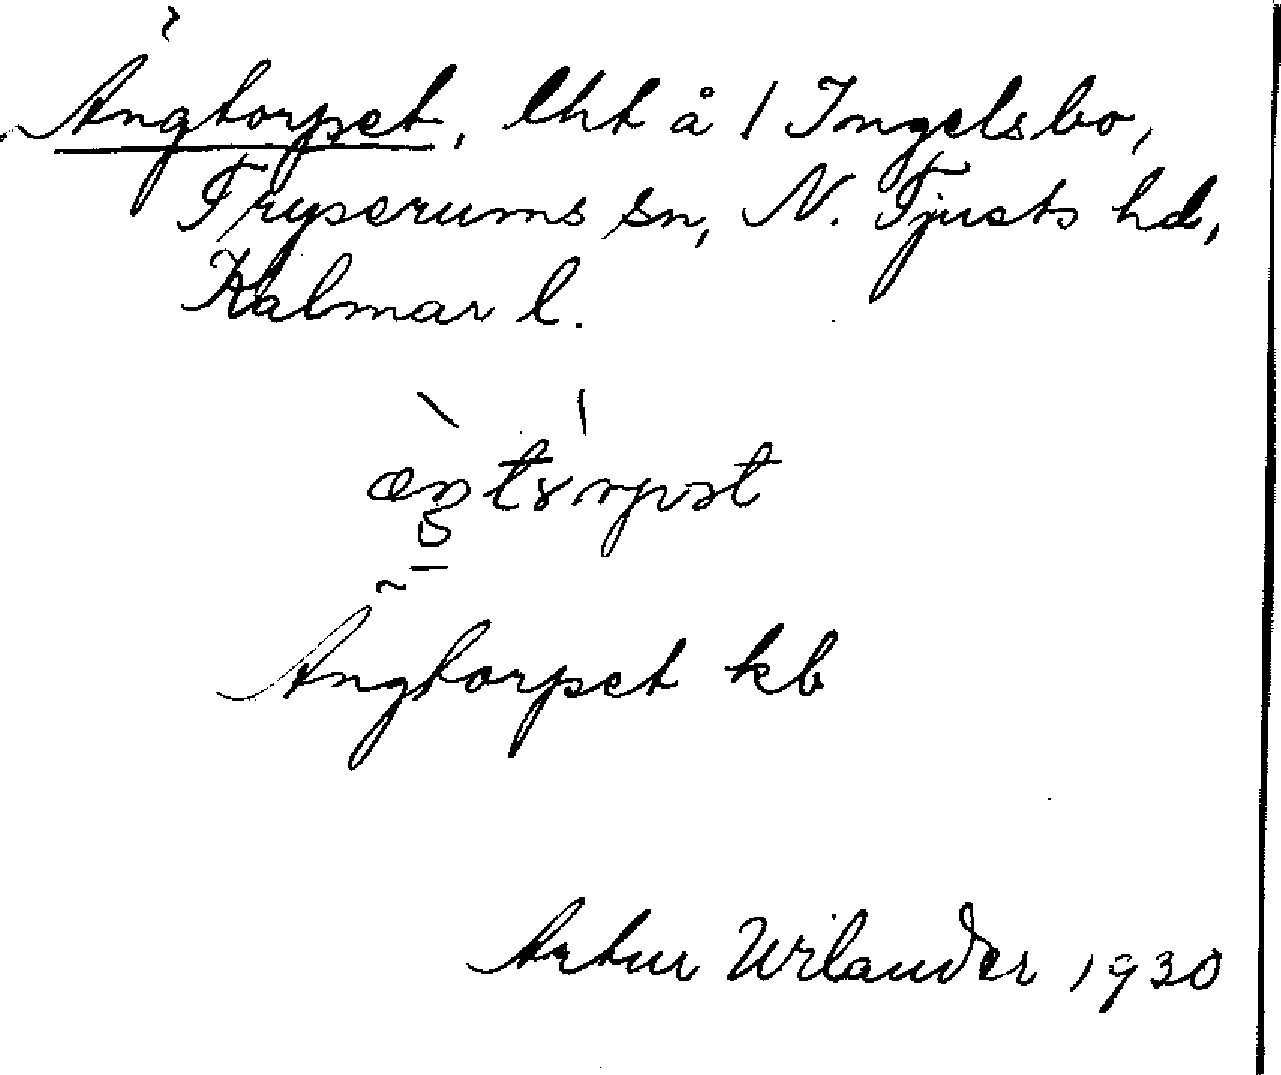 Ängtorpet, lht å 1 Ingelsbo,
Fryserums sn, N. Tjusts hd,
Kalmar l.
Ängtorpet kb
Artur Wilander 1930